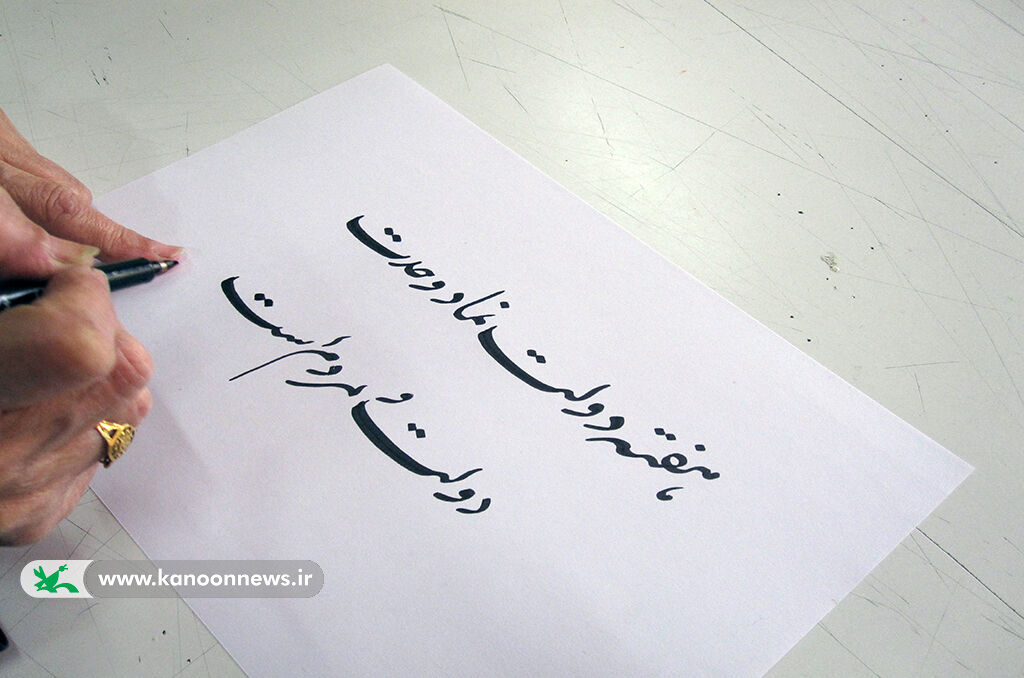 هفته دولت نماد وحدت
دولت و مردم است
www.kanoonnews.ir